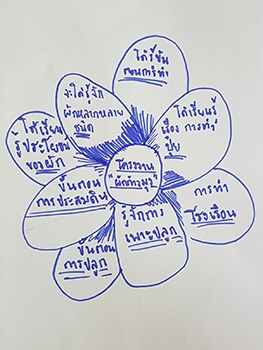 โครงงาน
"ผักสวนครัว"
ได้รู้ขั้น
ตอนการทำ
ได้เรียนรู้
เรื่อง การทำ
ปุ๋ย
การทำ
โรงเรือน
รู้จักการ
เพาะปลูก
ขั้นตอน
การปลูก
ขั้นตอน
การประสมดิน
ได้เรียน
รู้ประโยชน์
ของผัก
จะได้รู้จัก
ผักหลากหลาย
ชนิด